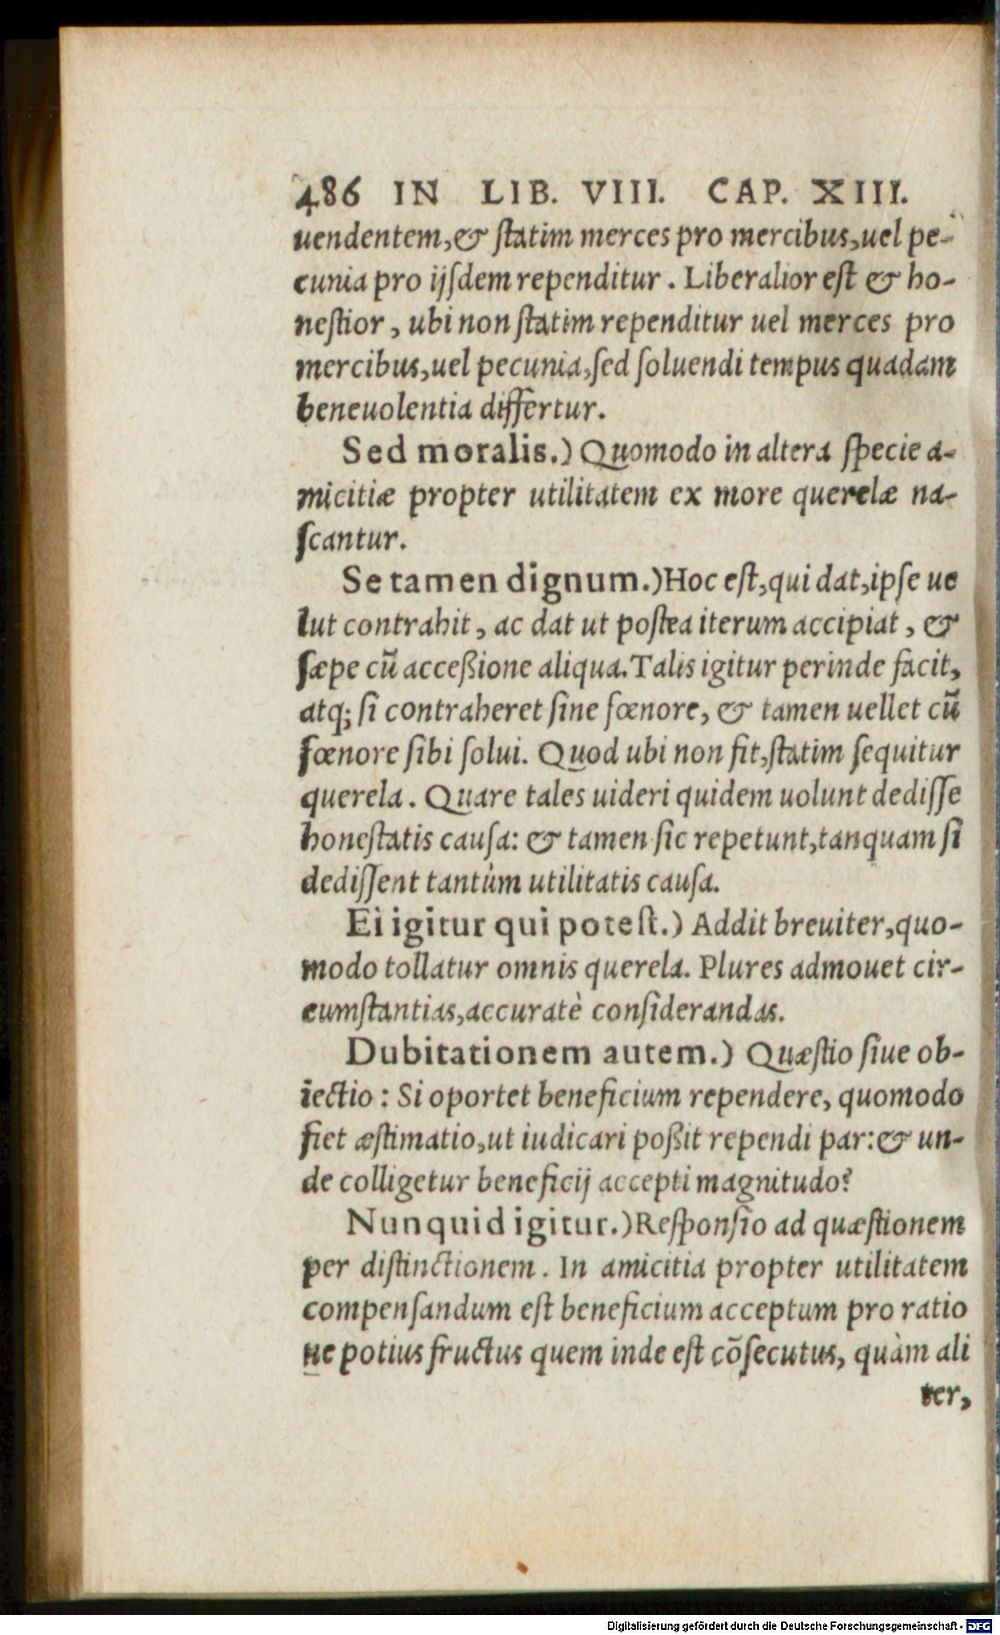 486 IN LIB. VIII. CAP. XIII.
uendentem,& ſtatim merces pro mercibus,uel pe-
cunia pro ijſdem rependitur. Liberalior eſt & ho-
neſtior, ubi non ſtatim rependitur uel merces pro
mercibus,uel pecunia,ſed ſoluendi tempus quadam
beneuolentia differtur.
Sed moralis.) Quomodo in altera ſpecie a-
micitiæ propter utilitatem ex more querelæ na-
ſcantur.
Se tamen dignum.) Hoc eſt,qui dat,ipſe ue
lut contrahit, ac dat ut poſtea iterum accipiat, &
ſæpe cū acceßione aliqua. Talis igitur perinde facit,
atq; ſi contraheret ſine fœnore, & tamen uellet cū
fœnore ſibi ſolui. Quod ubi non fit,ſtatim ſequitur
querela. Quare tales uideri quidem uolunt dediſſe
honeſtatis cauſa: & tamen ſic repetunt,tanquam ſi
dediſſent tantùm utilitatis cauſa.
Ei igitur qui poteſt.) Addit breuiter,quo-
modo tollatur omnis querela. Plures admouet cir-
cumſtantias,accuratè conſiderandas.
Dubitationem autem.) Quæſtio ſiue ob-
iectio: Si oportet beneficium rependere, quomodo
fiet æſtimatio,ut iudicari poßit rependi par:& un-
de colligetur beneficij accepti magnitudo?
Nunquid igitur.) Reſponſio ad quæſtionem
per diſtinctionem. In amicitia propter utilitatem
compenſandum eſt beneficium acceptum pro ratio
ne potius fructus quem inde eſt cōſecutus, quàm ali
ter,
Digitalisierung gefördert durch die Deutsche Forschungsgemeinschaft - DFG